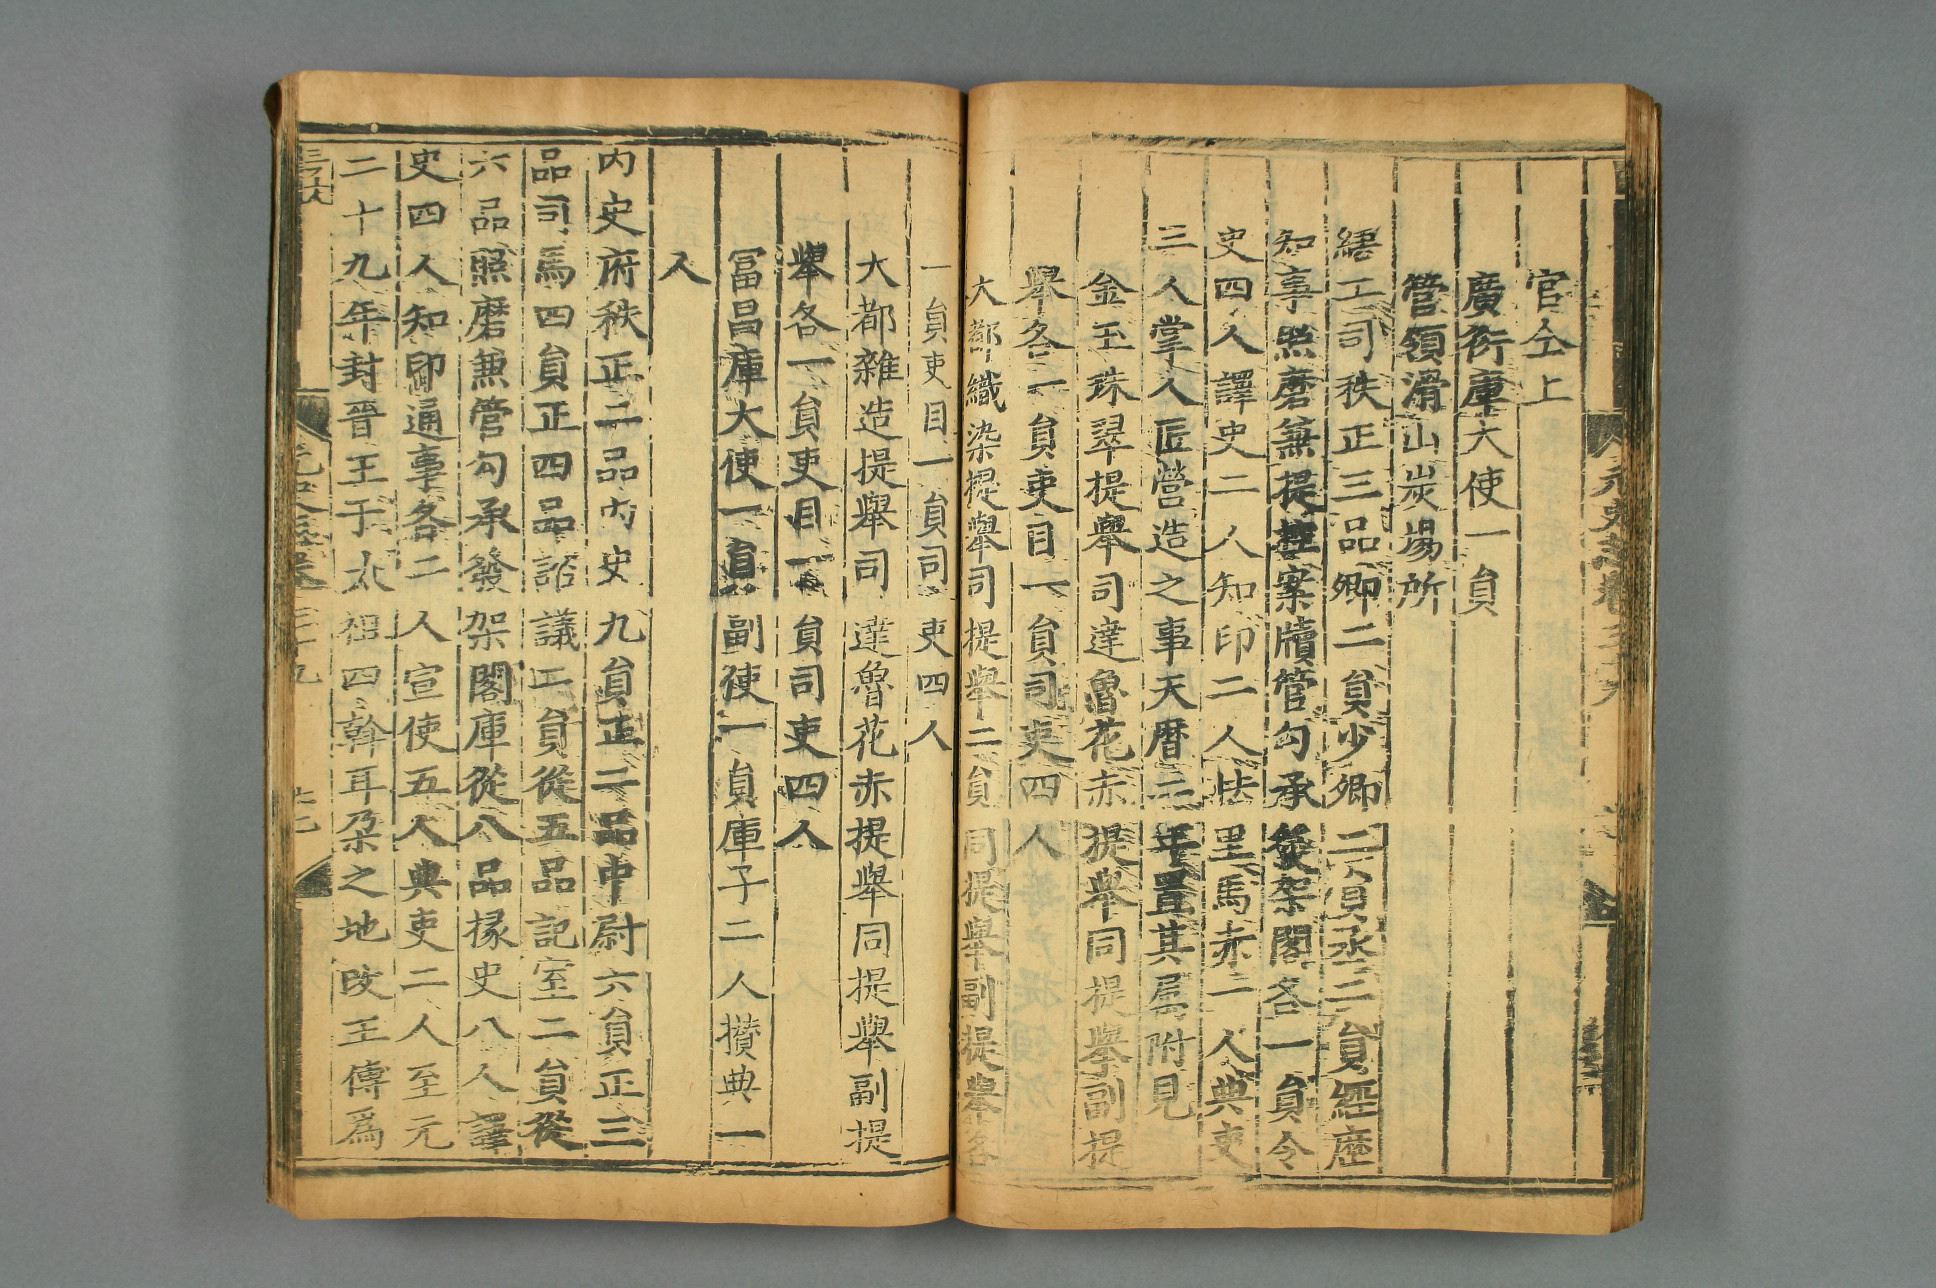 官仝上
廣衍庫大使一貟
管領滑山炭場所
繕工司秩正三品卿二貟少卿二貟丞二貟經歷
知事照磨兼提控案牘管勾承發架閣各一貟令
史四人譯史二人知印二人怯里馬赤二人典吏
三人掌人匠營造之事天曆二年置其屬附見
金玉珠翠提舉司達魯花赤提舉同提舉副提
舉各一貟吏目一貟司吏四人
大都織染提舉司提舉二貟同提舉副提舉各
一貟吏目一貟司吏四人
大都雜造提舉司達魯花赤提舉同提舉副提
舉各一貟吏目一貟司吏四人
冨昌庫大使一貟副使一貟庫子二人攢典一
人
内史府秩正二品内史九貟正二品中尉六貟正三
品司馬四貟正四品諮議二貟從五品記室二貟從
六品照磨兼管勾承發架閣庫從八品掾史八人譯
史四人知印通事各二人宣使五人典吏二人至元
二十九年封晉王于太祖四斡耳朶之地改王傅爲
元史志卷三十九